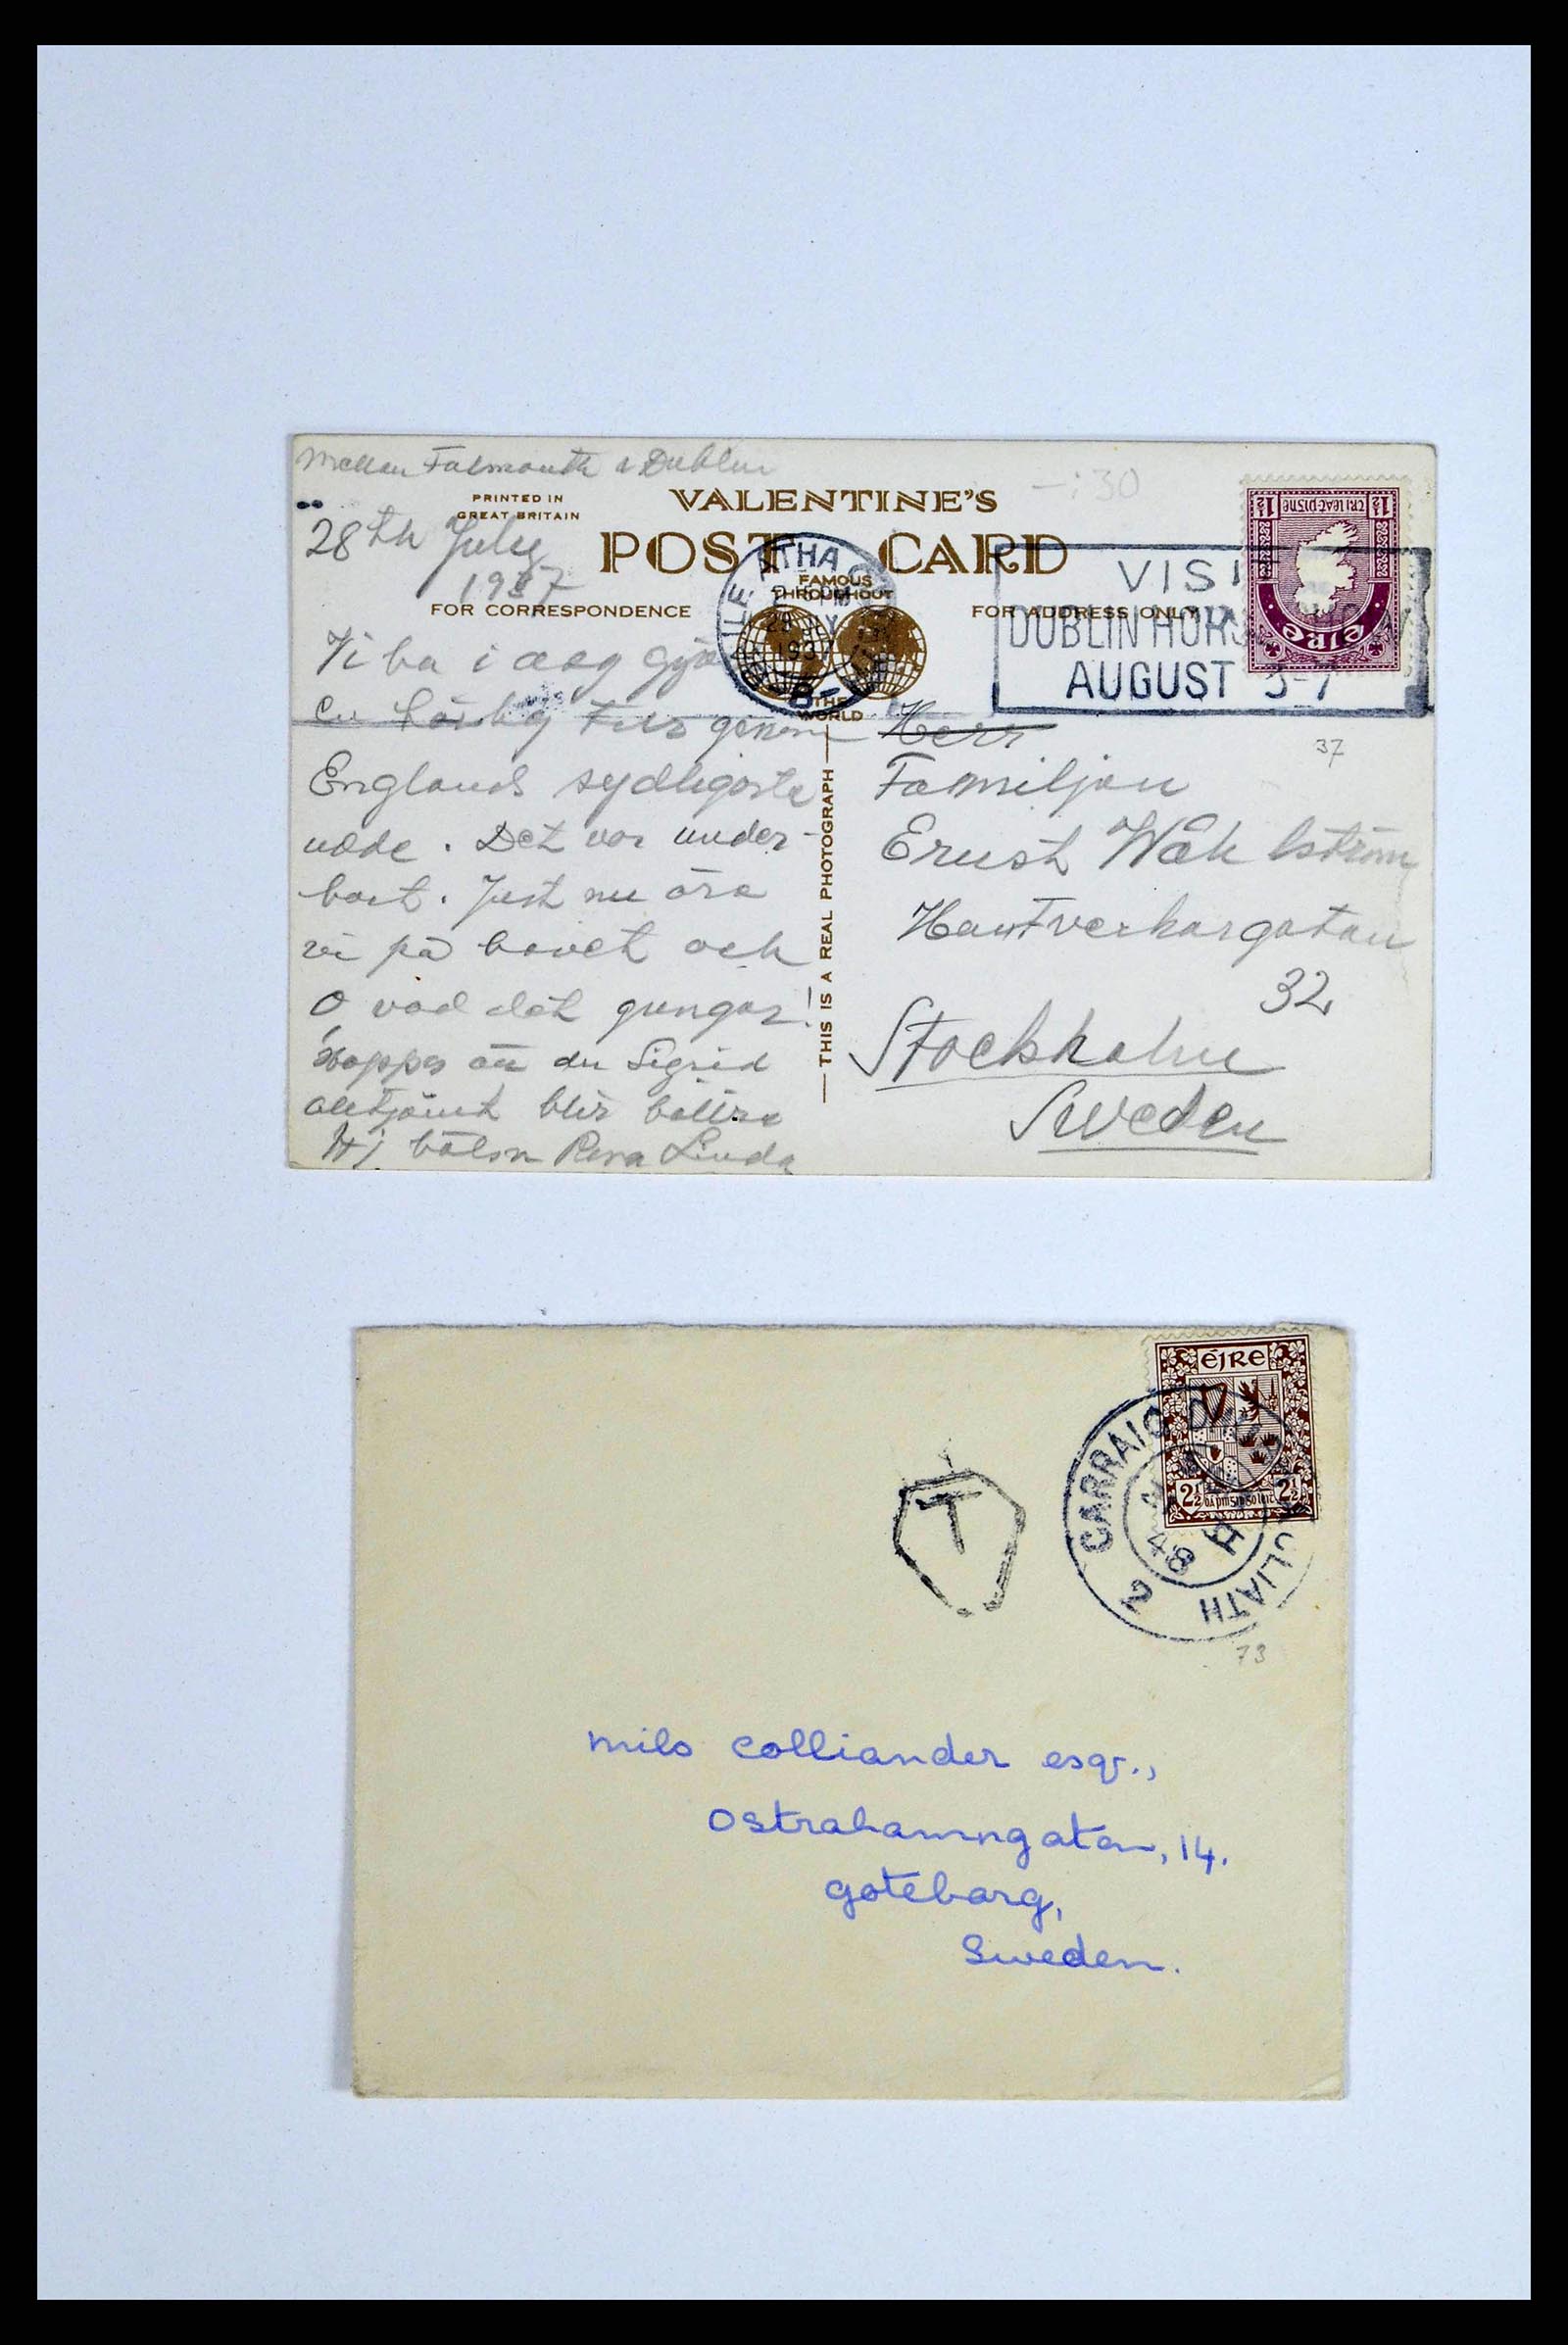 Mellan Falmouth & Dublin
-:30
PRINTED IN
GREAT BRITAIN
VALENTINE'S
28th July
1937
POST CARD
FAMOUS
THROUGHOUT
THE
WORLD
FOR CORRESPONDENCE
FOR ADDRESS ONLY
ATHA
1937
VISIT
DUBLIN HORSE
AUGUST 3-7
1½ TRÍ LEAT-PINNE 1½
EIRE
37
Vi ha i dag
en härlig genom
Englands sydligaste
udde. Det var under-
bart. Just nu äro
vi på havet och
O vad det gungar!
Hoppas att du Sigrid
alltjämt blir bättre
Hj hälsn Linda
THIS IS A REAL PHOTOGRAPH
Herr
Familjen
Ernst Wåhlström
Hantverkargatan
32
Stockholm
Sweden
ÉIRE
2½ 2½
CARRAIG
LIATH
48
2
T
73
Mils Colliander esqr.,
Ostrahamngatan, 14.
Goteborg,
Sweden.